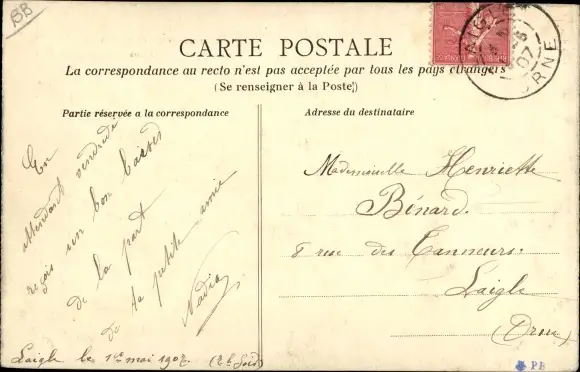 BB
CARTE POSTALE
La correspondance au recto n'est pas acceptée par tous les pays étrangers
(Se renseigner à la Poste)
LAIGLE
07
ORNE
Partie réservée a la correspondance
Adresse du destinataire
En
attendant vendredi
reçois un bon baiser
de la part
de ta petite amie
Nadia
Laigle le 1er mai 1907
Mademoiselle Henriette
Bénard.
8 rue des Tanneurs
Laigle
(Orne)
PB